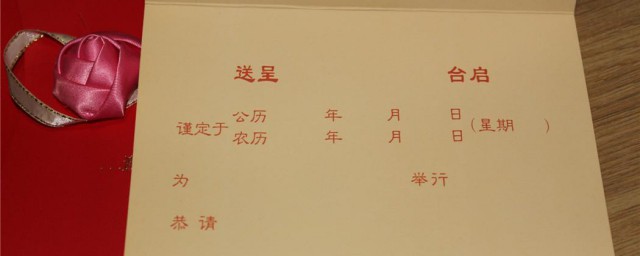 送呈 台启
谨定于 公历 年 月 日 (星期 )
农历 年 月 日
为 举行
恭请